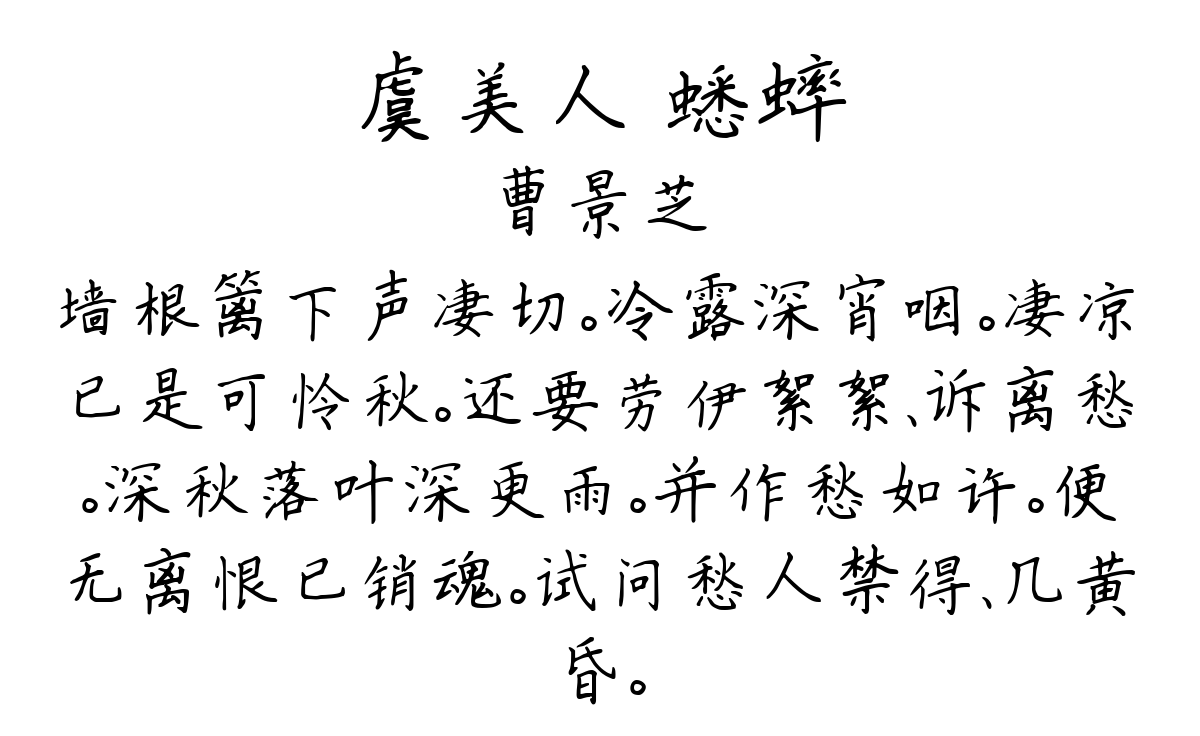 虞美人 蟋蟀
曹景芝
墙根篱下声凄切。冷露深宵咽。凄凉
已是可怜秋。还要劳伊絮絮、诉离愁
。深秋落叶深更雨。并作愁如许。便
无离恨已销魂。试问愁人禁得、几黄
昏。